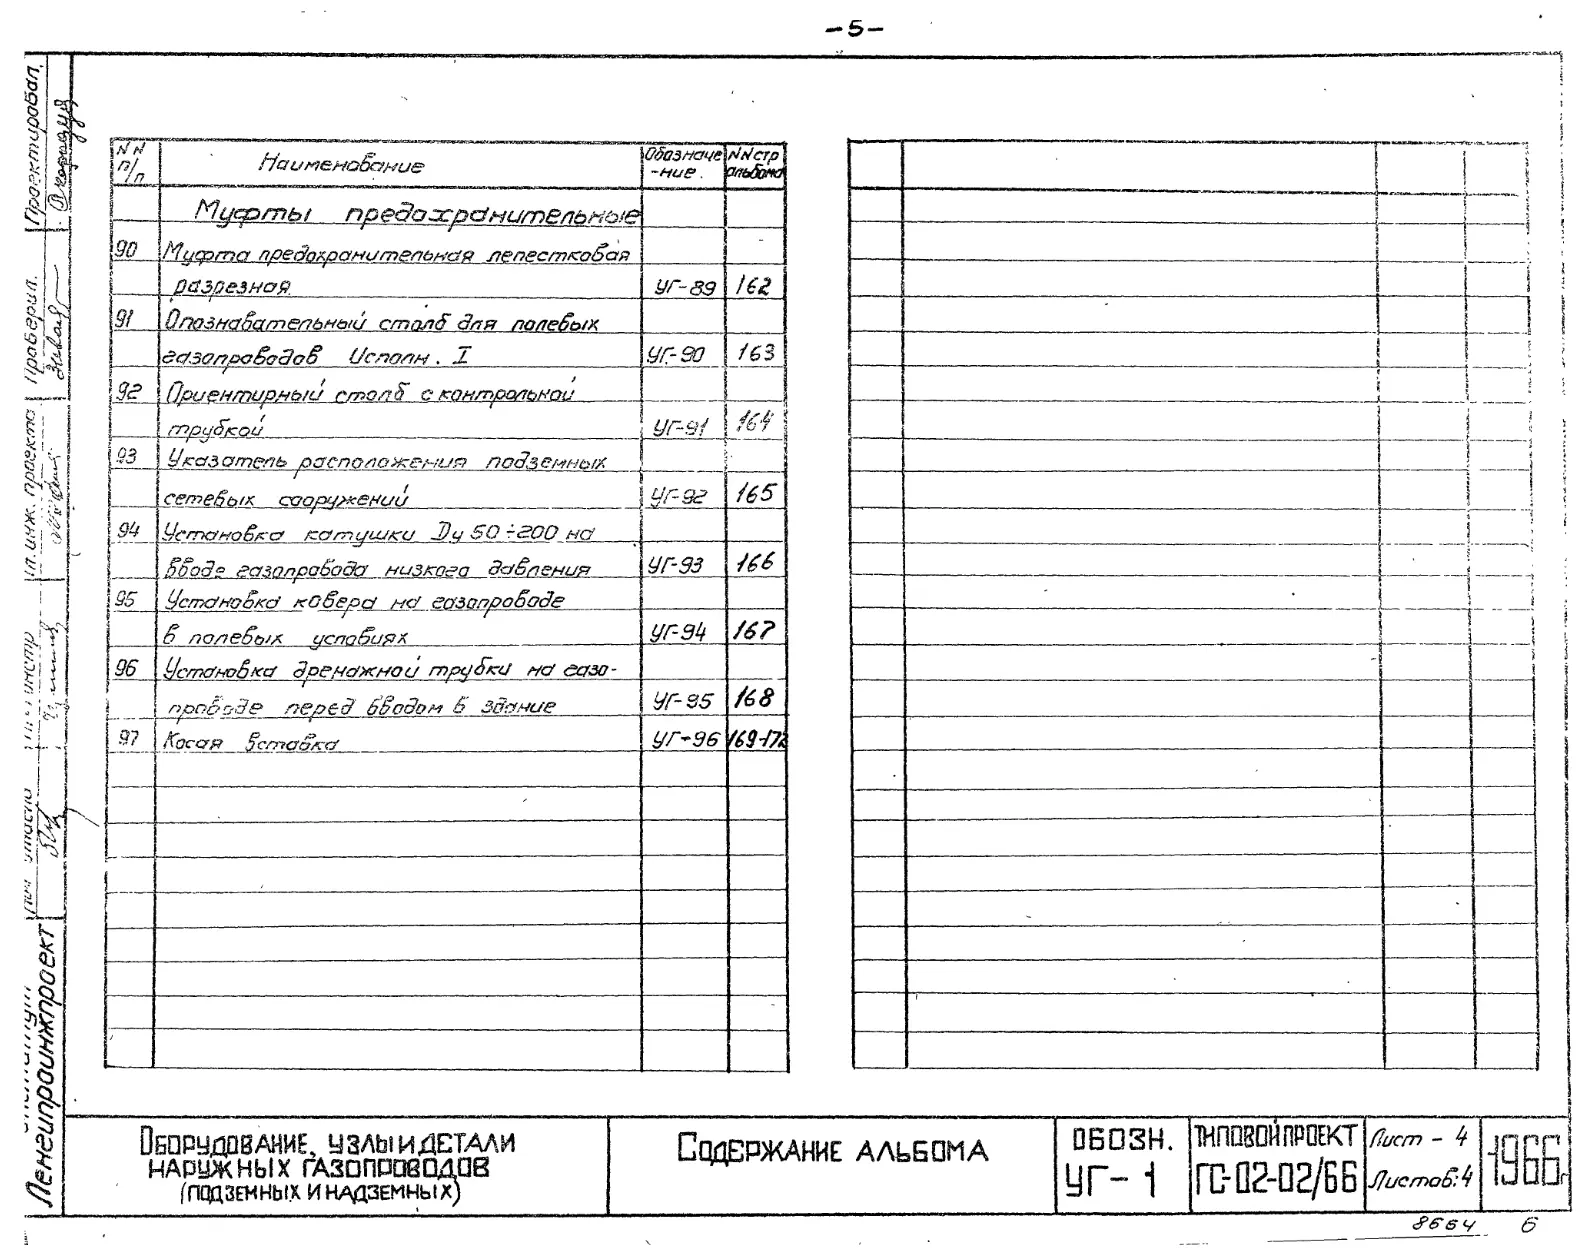 -5-
NN п/п Наименование Обозначе-ние. NN стр альбома
Муфты предохранительные
90 Муфта предохранительная лепестковая
разрезная. УГ-89 162
91 Опознавательный столб для полевых
газопроводов Исполн. I УГ-90 163
92 Ориентирный столб с контрольной
трубкой УГ-91 164
93 Указатель расположения подземных
сетевых сооружений УГ-92 165
94 Установка катушки Ду 50÷200 на
вводе газопровода низкого давления УГ-93 166
95 Установка ковера на газопроводе
в полевых условиях УГ-94 167
96 Установка дренажной трубки на газо-
проводе перед вводом в здание УГ-95 168
97 Косая вставка УГ-96 169-172
Проектировал.
Проверил.
гл. инж. проекта
Ленгипроинжпроект
Оборудование, узлы и детали
наружных газопроводов
(подземных и надземных)
Содержание альбома
Обозн.
УГ-1
Типовой проект
ГС-02-02/66
Лист - 4
Листов: 4
1966г
8664 6